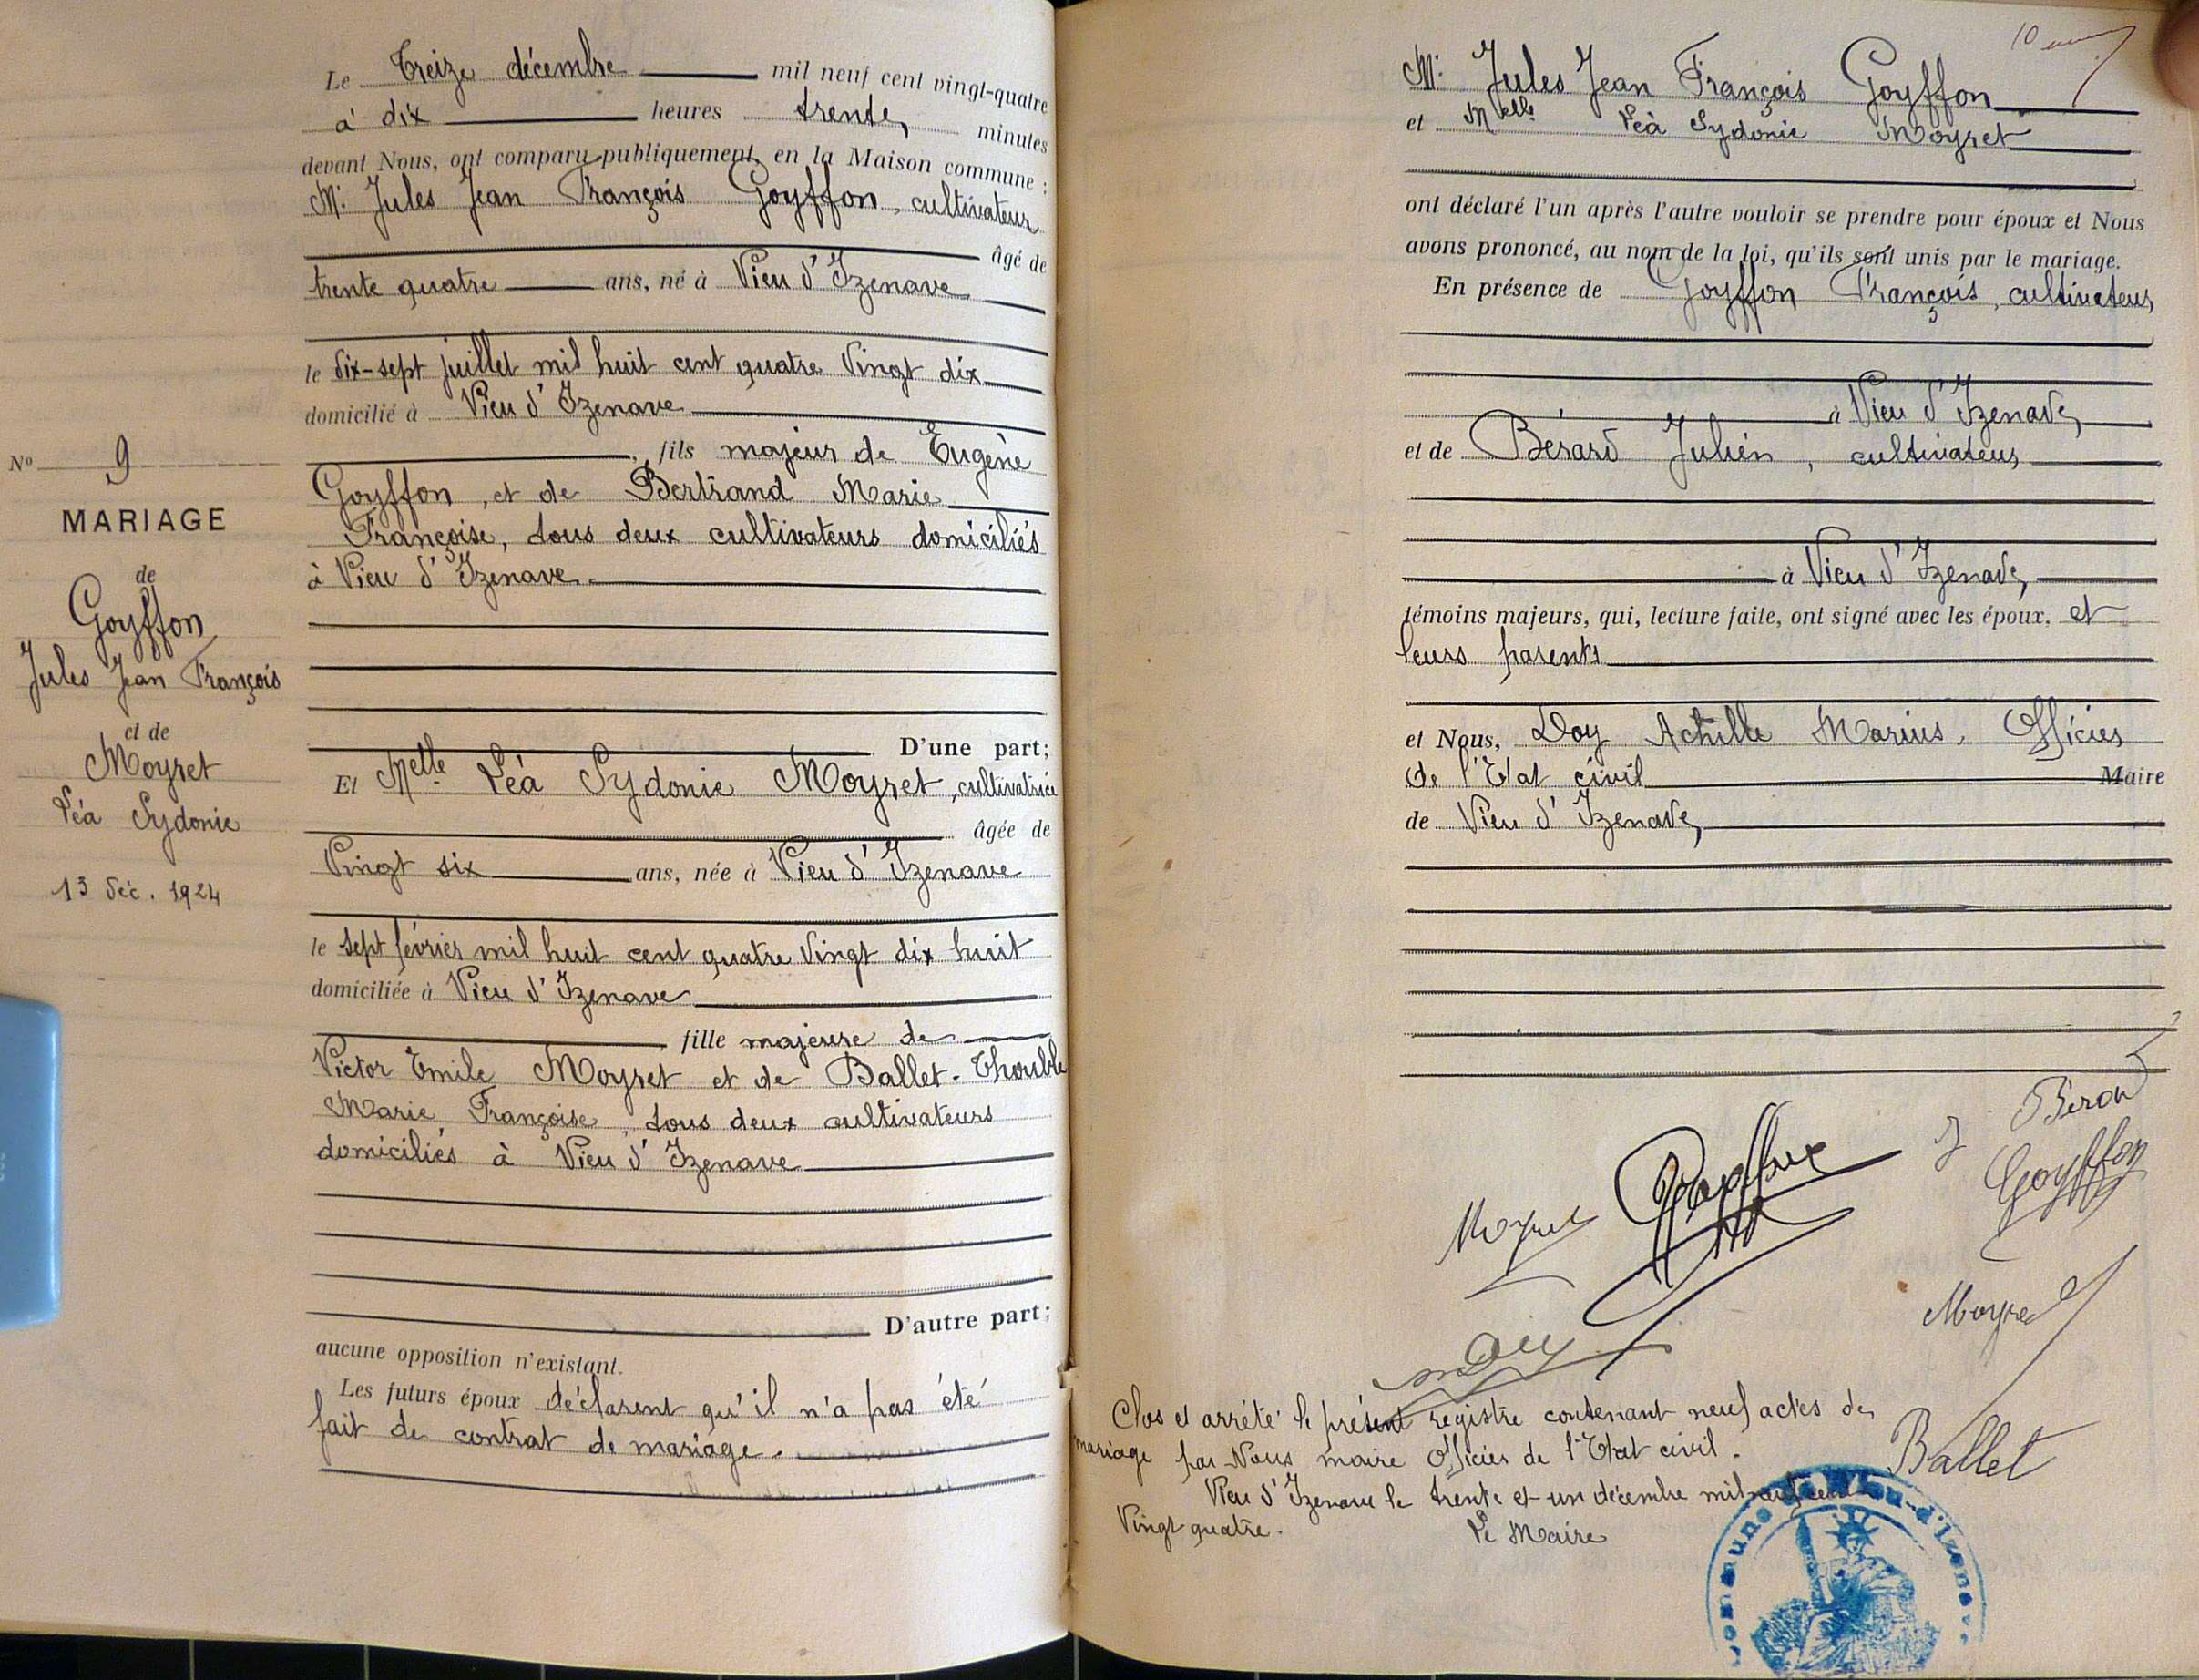 Le Treize décembre mil neuf cent vingt-quatre
à dix heures trente minutes
devant Nous, ont comparu publiquement, en la Maison commune :
Mr Jules Jean François Goyffon, cultivateur
âgé de
trente quatre ans, né à Vieu d'Izenave
le dix-sept juillet mil huit cent quatre vingt dix
domicilié à Vieu d'Izenave
fils majeur de Eugène
Goyffon, et de Bertrand Marie
Françoise, tous deux cultivateurs domiciliés
à Vieu d'Izenave.
D'une part;
Et Melle Léa Sydonie Moyret, cultivatrice
âgée de
Vingt six ans, née à Vieu d'Izenave
le sept février mil huit cent quatre vingt dix huit
domiciliée à Vieu d'Izenave
fille majeure de
Victor Emile Moyret et de Ballet-Thouble
Marie Françoise, tous deux cultivateurs
domiciliés à Vieu d'Izenave
D'autre part;
aucune opposition n'existant.
Les futurs époux déclarent qu'il n'a pas été
fait de contrat de mariage.
No 9
MARIAGE
de
Goyffon
Jules Jean François
et de
Moyret
Léa Sydonie
13 Déc. 1924
10
Mr Jules Jean François Goyffon
et Melle Léa Sydonie Moyret
ont déclaré l'un après l'autre vouloir se prendre pour époux et Nous
avons prononcé, au nom de la loi, qu'ils sont unis par le mariage.
En présence de Goyffon François, cultivateur
à Vieu d'Izenave
et de Bérard Julien, cultivateur
à Vieu d'Izenave,
témoins majeurs, qui, lecture faite, ont signé avec les époux, et
leurs parents
et Nous, Doy Achille Marius, Officier
de l'Etat civil Maire
de Vieu d'Izenave,
Goyffon
Moyret
Ballet
Clos et arrêté le présent registre contenant neuf actes de
mariage par Nous maire Officier de l'Etat civil.
Vieu d'Izenave le trente et un décembre mil neuf cent
Vingt quatre.
Le Maire
Commune de Vieu-d'Izenave